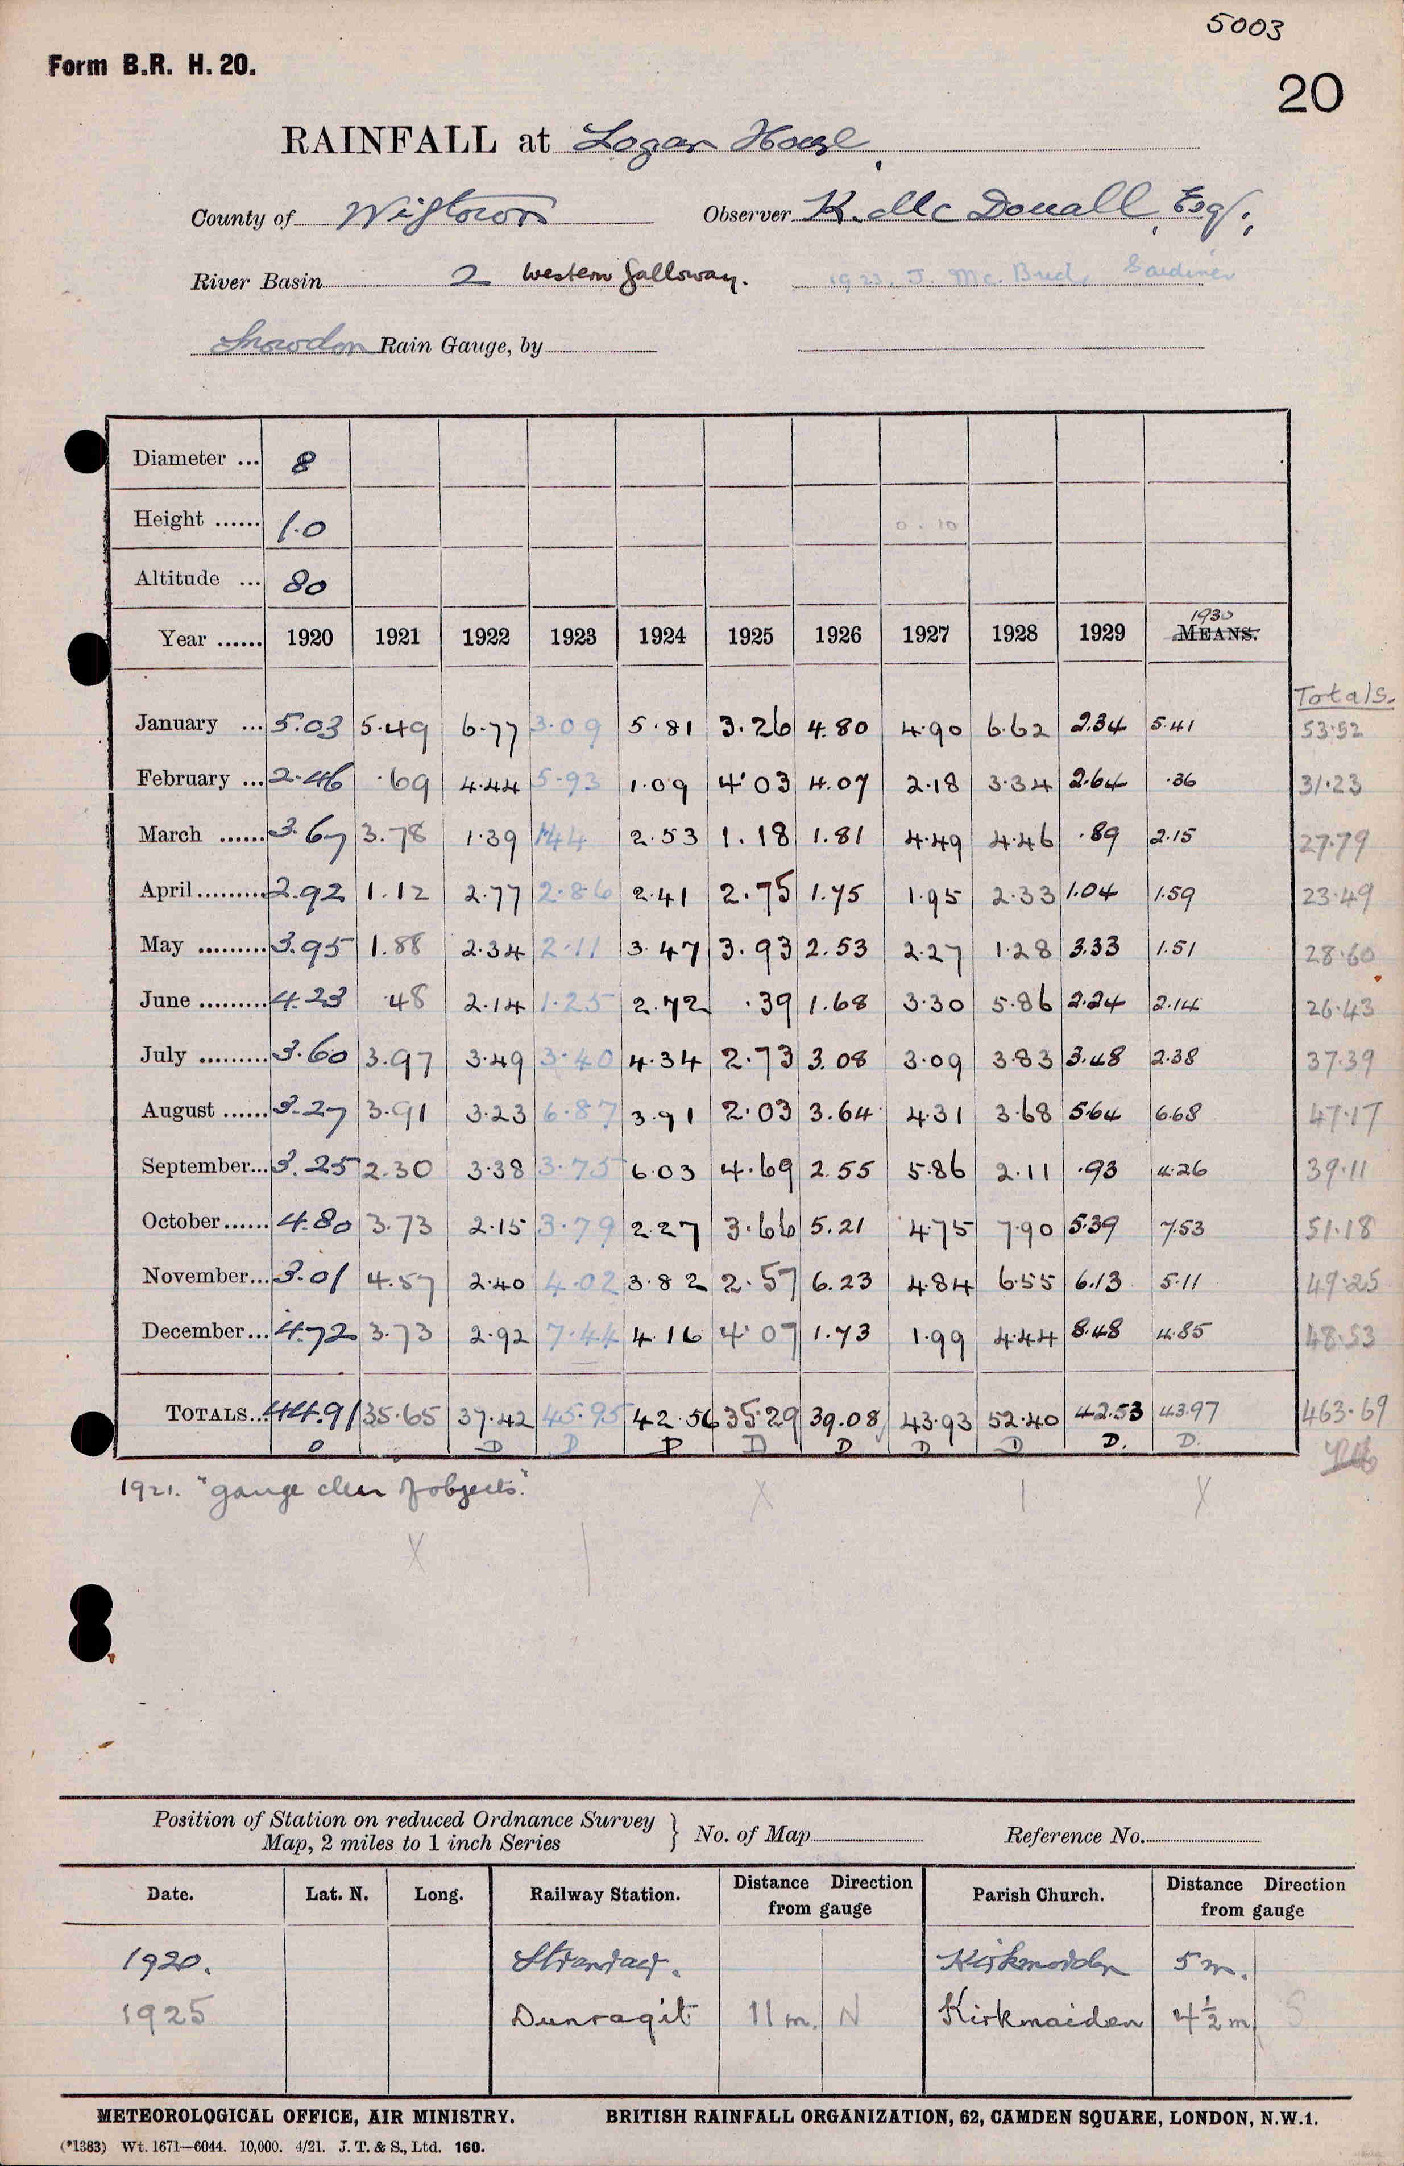 5003
Form B.R. H. 20.
20
RAINFALL at Logan House,
County of Wigtown Observer K. McDouall, Esq.,
River Basin 2 Western Galloway. 1923. J. Mc. Gardiner
Snowdon Rain Gauge, by
Diameter ... 8
Height ...... 1.0 0.10
Altitude ... 80
1930
Year ...... 1920 1921 1922 1923 1924 1925 1926 1927 1928 1929 MEANS.
Totals.
January ... 5.03 5.49 6.77 3.09 5.81 3.26 4.80 4.90 6.62 2.34 5.41 53.52
February ... 2.46 .69 4.44 5.93 1.09 4.03 4.07 2.18 3.34 2.64 .36 31.23
March ...... 3.67 3.78 1.39 1.44 2.53 1.18 1.81 4.49 4.46 .89 2.15 27.79
April ......... 2.92 1.12 2.77 2.86 2.41 2.75 1.75 1.95 2.33 1.04 1.59 23.49
May ......... 3.95 1.88 2.34 2.11 3.47 3.93 2.53 2.27 1.28 3.33 1.51 28.60
June ......... 4.23 .48 2.14 1.25 2.72 .39 1.68 3.30 5.86 2.24 2.14 26.43
July ......... 3.60 3.97 3.49 3.40 4.34 2.73 3.08 3.09 3.83 3.48 2.38 37.39
August ...... 3.27 3.91 3.23 6.87 3.91 2.03 3.64 4.31 3.68 5.64 6.68 47.17
September... 3.25 2.30 3.38 3.75 6.03 4.69 2.55 5.86 2.11 .93 4.26 39.11
October...... 4.80 3.73 2.15 3.79 2.27 3.66 5.21 4.75 7.90 5.39 7.53 51.18
November... 3.01 4.57 2.40 4.02 3.82 2.57 6.23 4.84 6.55 6.13 5.11 49.25
December... 4.72 3.73 2.92 7.44 4.16 4.07 1.73 1.99 4.44 8.48 4.85 48.53
TOTALS... 44.91 35.65 37.42 45.95 42.56 35.29 39.08 43.93 52.40 42.53 43.97 463.69
D D D D D D D D D. D.
1921. "gauge clear of objects."
Position of Station on reduced Ordnance Survey
Map, 2 miles to 1 inch Series } No. of Map Reference No.
Date. Lat. N. Long. Railway Station. Distance Direction from gauge Parish Church. Distance Direction from gauge
1920. Stranraer. Kirkmaiden 5 m.
1925 Dunragit 11 m. N Kirkmaiden 4½ m S
METEOROLOGICAL OFFICE, AIR MINISTRY. BRITISH RAINFALL ORGANIZATION, 62, CAMDEN SQUARE, LONDON, N.W.1.
(*1383) Wt. 1671—6044. 10,000. 4/21. J. T. & S., Ltd. 160.